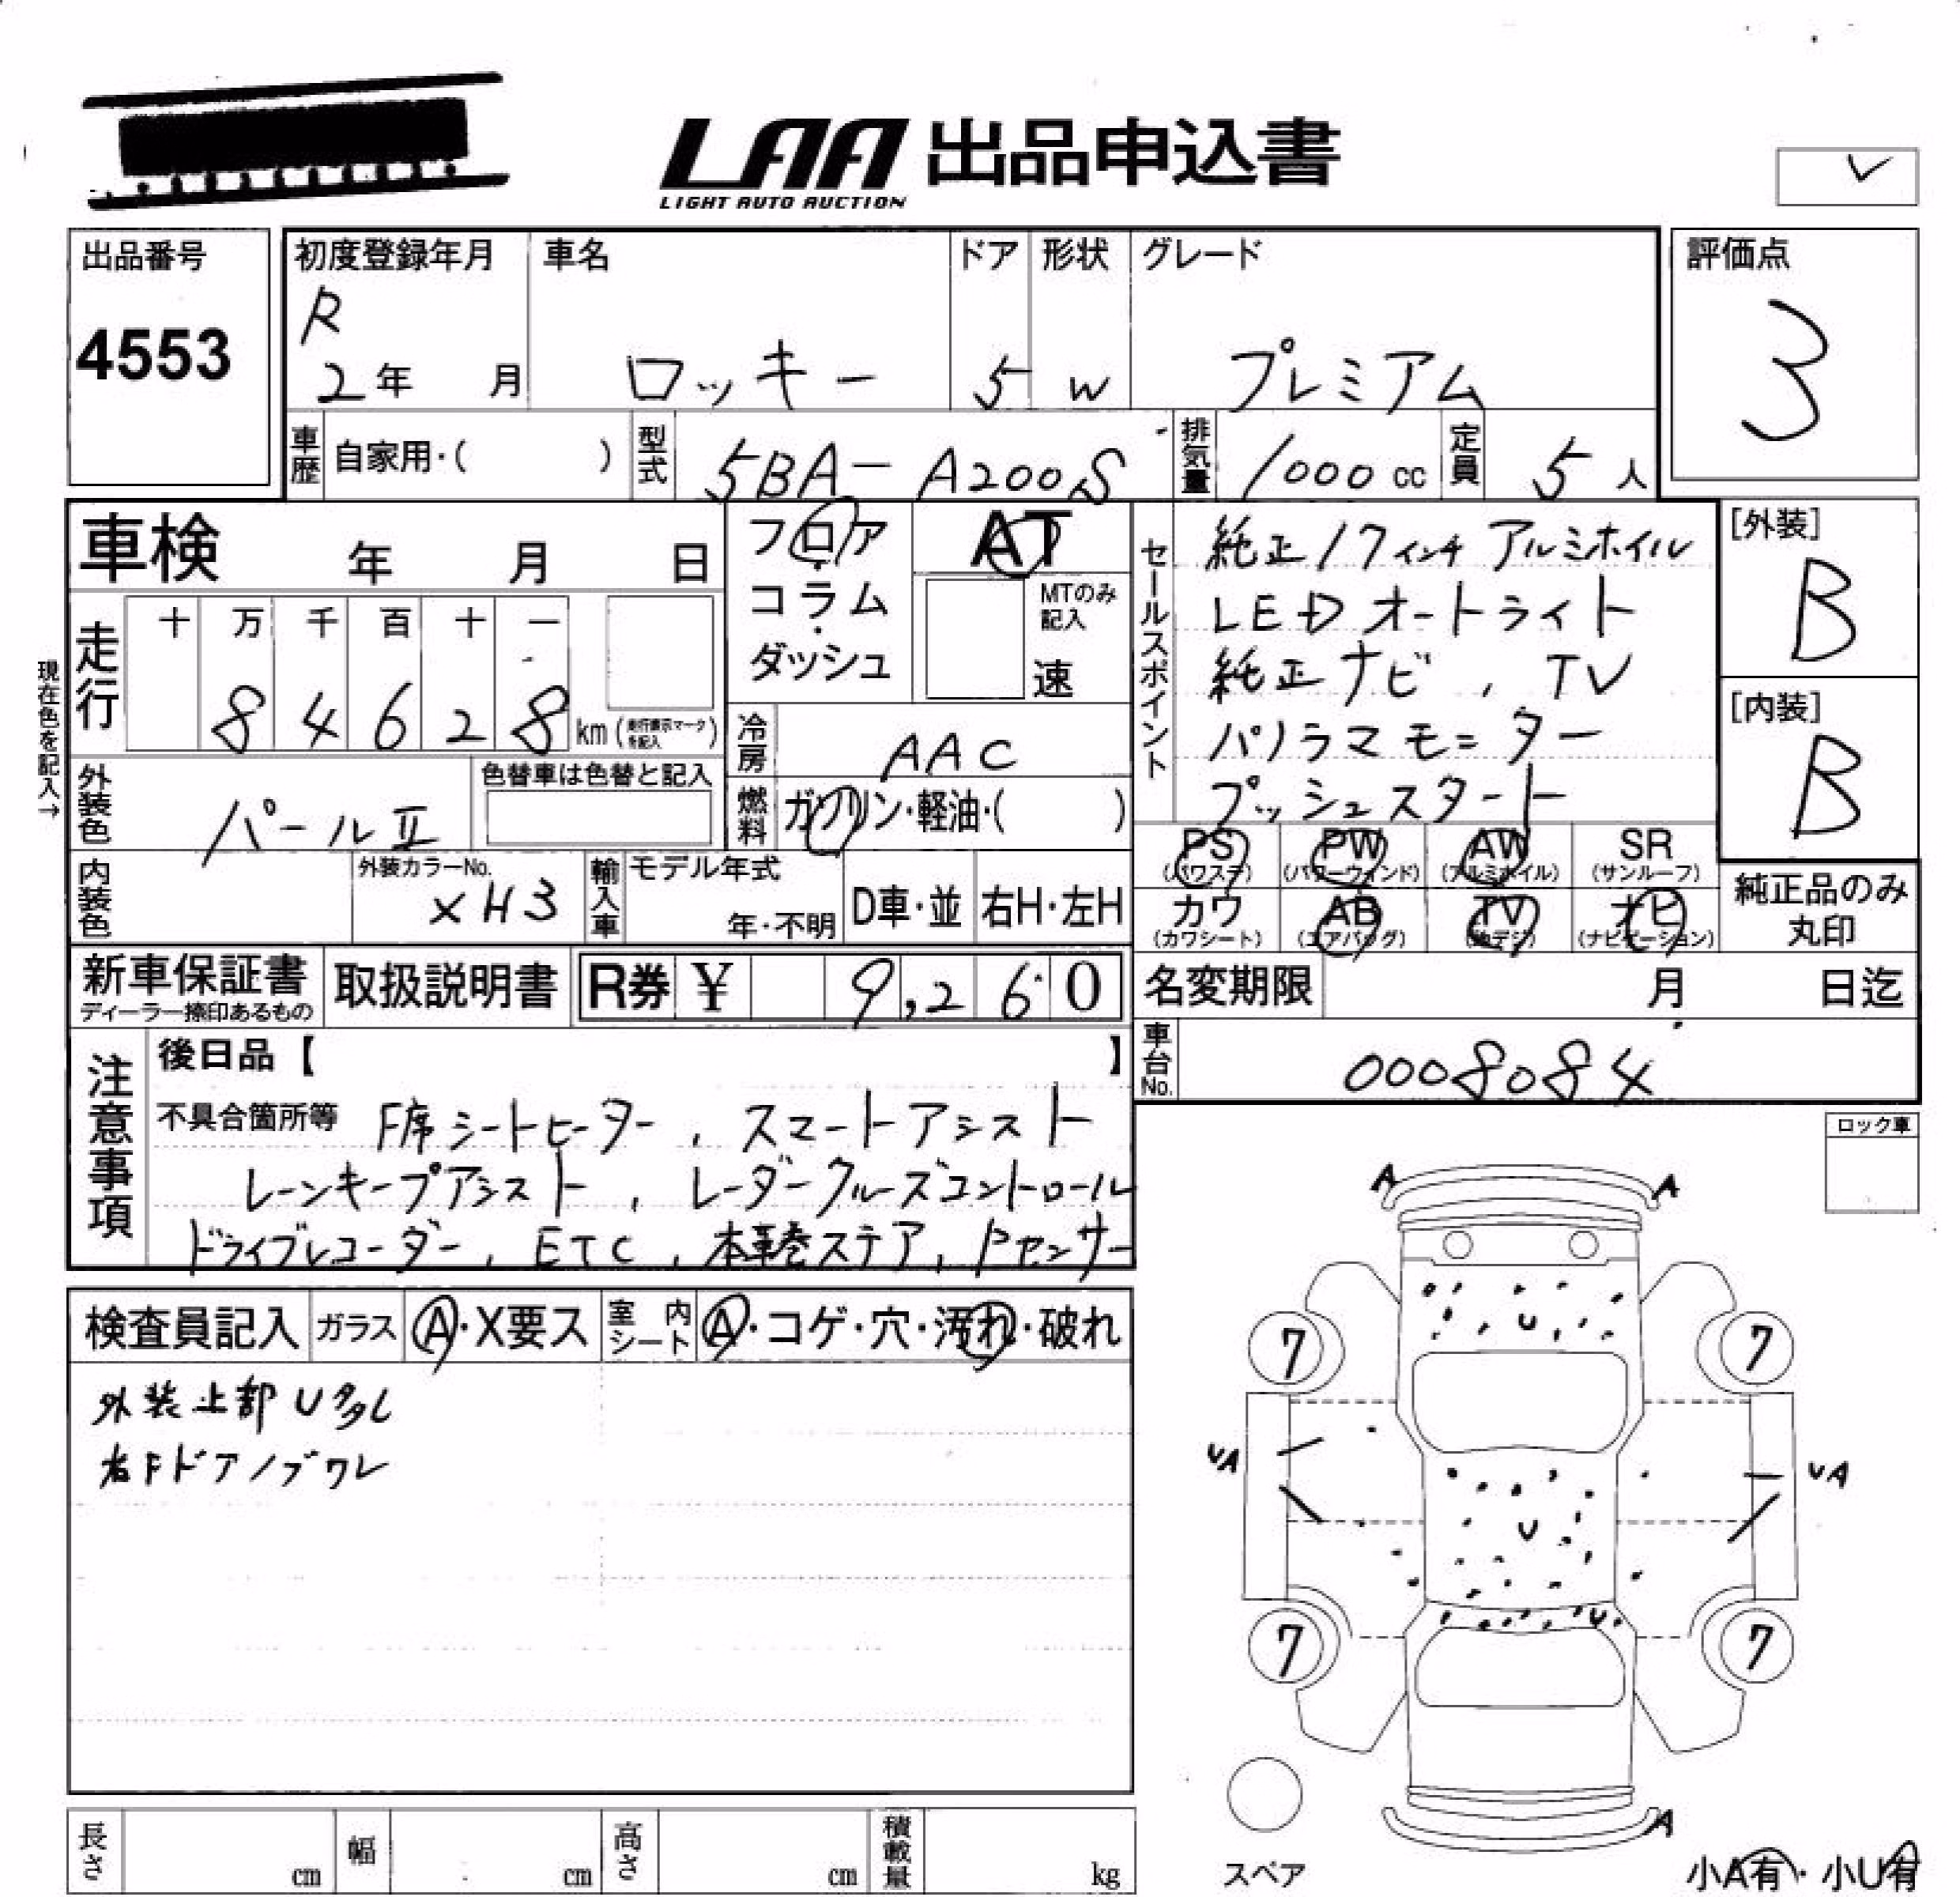 LAA 出品申込書
LIGHT AUTO AUCTION
出品番号
4553
初度登録年月
R
2年 月
車名
ロッキー
ドア
5
形状
W
グレード
プレミアム
評価点
3
車歴 自家用・( )
型式 5BA-A200S
排気量 1000 cc
定員 5 人
車検 年 月 日
フロア
コラム
ダッシュ
AT
MTのみ記入
速
セールスポイント
純正17インチアルミホイル
LEDオートライト
純正ナビ, TV
パノラマモニター
プッシュスタート
[外装]
B
[内装]
B
走行 十 万 千 百 十 一
8 4 6 2 8 km (走行表示マークを記入)
現在色を記入→
冷房 AAC
燃料 ガソリン・軽油・( )
外装色 パールII
色替車は色替と記入
内装色
外装カラーNo.
XH3
輸入車 モデル年式
年・不明
D車・並 右H・左H
PS (パワステ) PW (パワーウィンド) AW (アルミホイル) SR (サンルーフ)
カワ (カワシート) AB (エアバッグ) TV (地デジ) ナビ (ナビゲーション)
純正品のみ
丸印
新車保証書
ディーラー捺印あるもの
取扱説明書
R券 ¥ 9,260
名変期限 月 日迄
車台No. 0008084
注意事項
後日品【 】
不具合箇所等 F席シートヒーター, スマートアシスト
レーンキープアシスト, レーダークルーズコントロール
ドライブレコーダー, ETC, 本革巻ステア, Pセンサー
ロック車
検査員記入 ガラス A・X要ス 室内シート A・コゲ・穴・汚れ・破れ
外装上部U多し
右Fドアノブワレ
A A
U
7 7
UA UA
U
U
7 7
A
スペア
小A有・小U有
長さ cm 幅 cm 高さ cm 積載量 kg